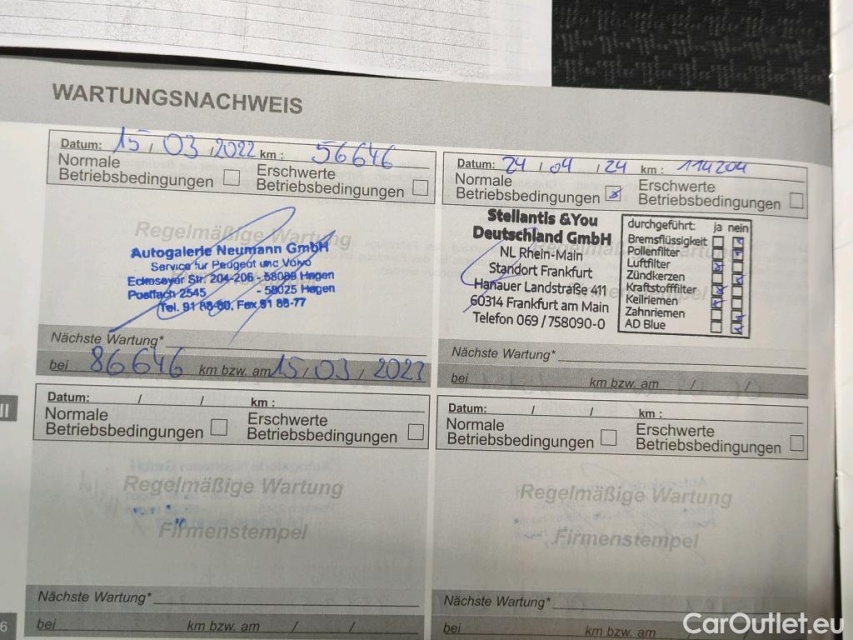 WARTUNGSNACHWEIS
Datum: 15 / 03 / 2022 km : 56646
Normale Betriebsbedingungen
Erschwerte Betriebsbedingungen
Regelmäßige Wartung
Autogalerie Neumann GmbH
Service für Peugeot und Volvo
Eckeseyer Str. 204-206 - 58089 Hagen
Postfach 2545 - 58025 Hagen
Tel. 91 88-80, Fax 91 88-77
Nächste Wartung*
bei 86646 km bzw. am 15 / 03 / 2023
Datum: 24 / 04 / 24 km : 114204
Normale Betriebsbedingungen
Erschwerte Betriebsbedingungen
Stellantis &You
Deutschland GmbH
NL Rhein-Main
Standort Frankfurt
Hanauer Landstraße 411
60314 Frankfurt am Main
Telefon 069 / 758090-0
durchgeführt: ja nein
Bremsflüssigkeit
Pollenfilter
Luftfilter
Zündkerzen
Kraftstofffilter
Keilriemen
Zahnriemen
AD Blue
Nächste Wartung*
bei km bzw. am / /
II
Datum: / / km :
Normale Betriebsbedingungen
Erschwerte Betriebsbedingungen
Regelmäßige Wartung
Firmenstempel
Nächste Wartung*
bei km bzw. am / /
Datum: / / km :
Normale Betriebsbedingungen
Erschwerte Betriebsbedingungen
Regelmäßige Wartung
Firmenstempel
Nächste Wartung*
bei km bzw. am
6
CarOutlet.eu